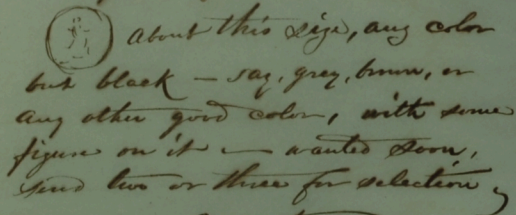 about this size, any color
but black — say, grey, brown, or
any other good color, with some
figure on it — wanted soon,
send two or three for selection,